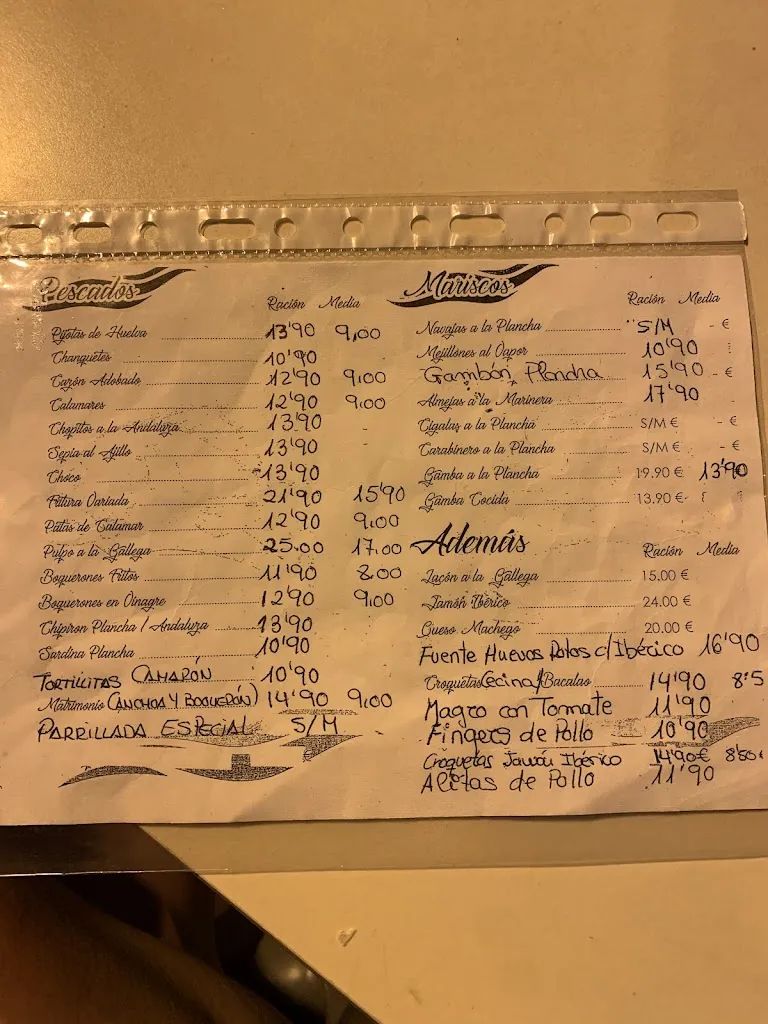 Pescados
Ración Media
Pijotas de Huelva 13'90 9,00
Chanquetes 10'90
Cazón Adobado 12'90 9,00
Calamares 12'90 9,00
Chopitos a la Andaluza 13'90 -
Sepia al Ajillo 13'90
Choco 13'90
Fritura Variada 21'90 15'90
Patas de Calamar 12'90 9,00
Pulpo a la Gallega 25.00 17.00
Boquerones Fritos 11'90 8.00
Boquerones en Vinagre 12'90 9,00
Chipiron Plancha / Andaluza 13'90
Sardina Plancha 10'90
TORTILLITAS CAMARÓN 10'90
Matrimonio (ANCHOA Y BOQUERÓN) 14'90 9,00
PARRILLADA ESPECIAL S/M
Mariscos
Ración Media
Navajas a la Plancha S/M - €
Mejillones al Vapor 10'90
Gambón Plancha 15'90 - €
Almejas a la Marinera 17'90
Cigalas a la Plancha S/M € - €
Carabinero a la Plancha S/M € - €
Gamba a la Plancha 19.90 € 13'90
Gamba Cocida 13.90 €
Además
Ración Media
Lacón a la Gallega 15.00 €
Jamón Ibérico 24.00 €
Queso Machego 20.00 €
Fuente Huevos Rotos c/Ibérico 16'90
Croquetas Cecina/Bacalao 14'90 8'5
Magro con Tomate 11'90
Fingers de Pollo 10'90
Croquetas Jamón Ibérico 14'90€ 8'50
Alitas de Pollo 11'90